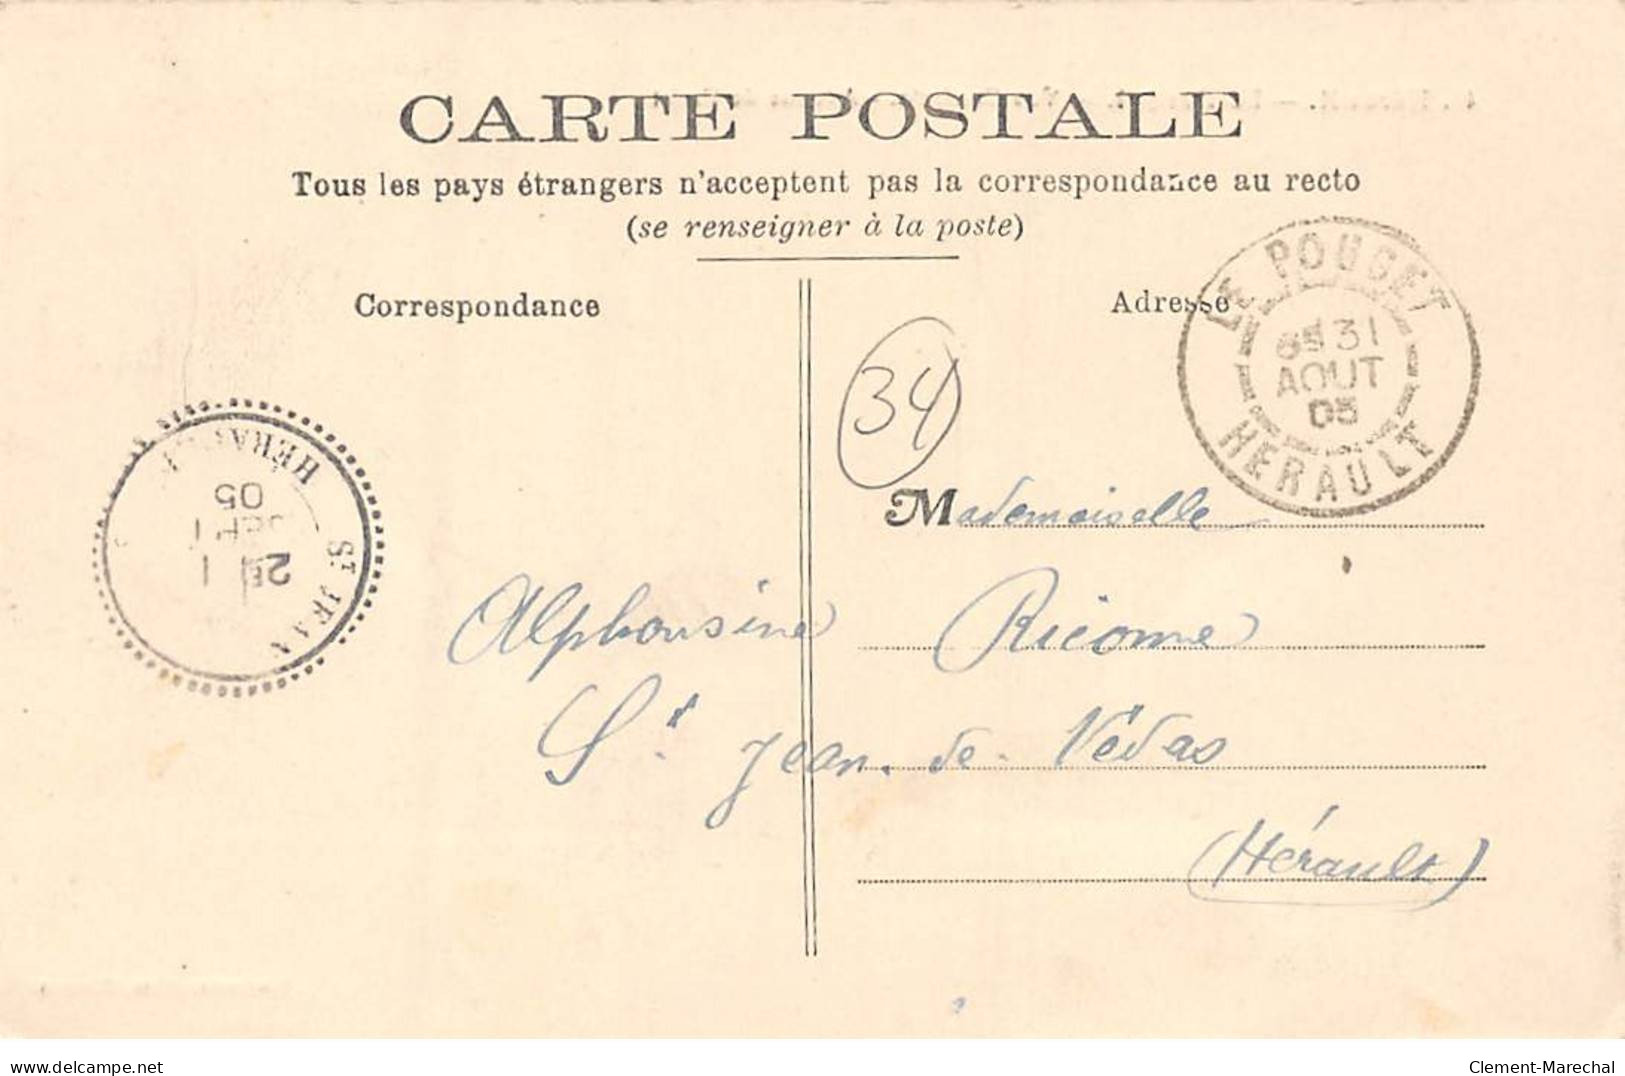 CARTE POSTALE
Tous les pays étrangers n'acceptent pas la correspondance au recto
(se renseigner à la poste)
Correspondance
Adresse
LE POUGET
31
AOUT
05
HERAULT
34
Mademoiselle
Alphonsine Ricome
St Jean-de-Védas
(Hérault)
ST JEAN
2E 1
SEPT
05
HÉRAULT
delcampe.net
Clement-Marechal